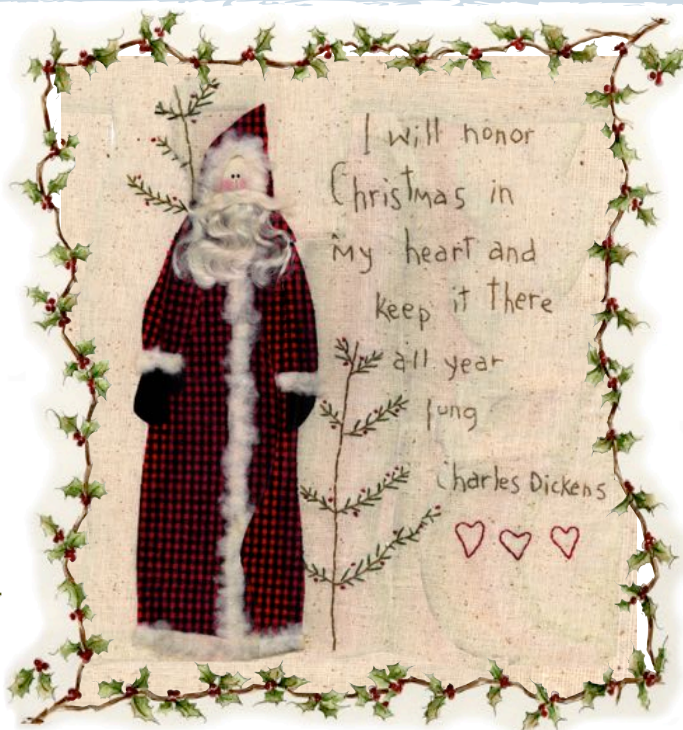 I will honor
Christmas in
My heart and
keep it there
all year
long
Charles Dickens